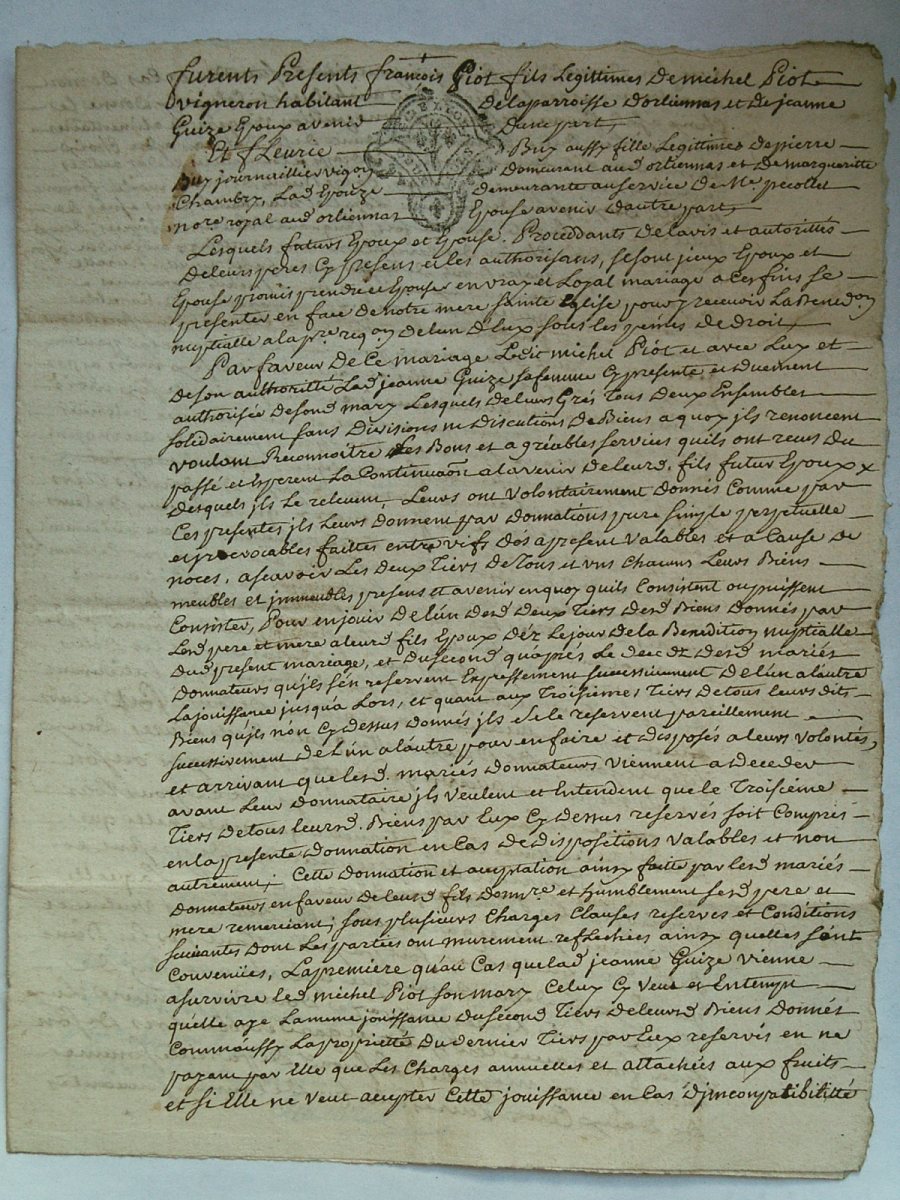 furents Presents françois Piot fils Legittimes De michel Piot
vigneron habitant De la parroisse d'orliennas et de jeanne
Guize Epoux avenir D'une part,
Et fleurie Buy aussy fille Legittimes de pierre
Buy journaillier vigon Demeurant aud orliennas et De margueritte
Chambry, Lad Epouze demeurante au service De Me pecollet
nore royal aud orliennas Epouse avenir d'autre part,
Lesquels futurs Epoux et Epouse. Proceddants De lavis et autorittés
De leurs peres Cy presens et les authorisans, se sont jceux Epoux et
Epouse promis prendre et Epouser en vray et Loyal mariage a ces fins se
presenter en face de notre mere Sainte Eglise pour y recevoir La Benedon
nuptialle a la pre. reqon De lun D lux sous les peines De droit,
Par faveur De Ce mariage Ledit michel Piot et avec Lux et
De son authoritté Lad jeanne Guize sa femme Cy presente et Duement
authorisée De sond mary Lesquels de leurs Grés Tous Deux Ensembles
solidairement sans Divisions ni Discutions De Biens a quoy jls renoncent
voulant Reconnoître Les Bons et agréables services quils ont recus du
passé et Esperent La Continuaon a lavenir De leurd. fils futur Epoux x
Desquels jls Le relevent, Leurs ont volontairement donnés Comme par
Ces presentes jls Leurs Donnent par donnations pure simple perpetuelle
et jrrevocables faittes entre vifs dés a present valables et a Cause de
noces, ascavoir Les Deux Tiers De Tous et uns Chacuns Leurs Biens
meubles et jmmeubles presens et avenir en quoy quils Consistent ou puissent
Consister, Pour en jouir De lun Desd Deux Tiers Desd Biens Donnés par
Lesd pere et mere a leurd fils Epoux Déz Le jour De la Benedition nuptialle
Dud present mareage, et Du second qu'aprés Le decedz Desd mariés
Donnateurs qu'jls s'en reservent Expressement successivement De lun a lautre
La jouissance jusqua Lors, et quant aux Troisiemes Tiers De tous leurs dits
Biens qu'jls n'on Cy Dessus Donnés jls se le reservent pareillement
successivement De lun a lautre pour en faire et disposés a leurs volontés,
et arrivant que lesd. mariés Donnateurs viennent a Deceder
avant Leur Donnataire jls veulent et Entendent que le Troisieme
Tiers De tous leursd. Biens par Eux Cy Dessus reservés soit Compris
en la presente Donnation en Cas de dispositions valables et non
autrement; Cette Donnation et aceptation ainsy faitte par lesd mariés
Donnateurs en faveur De leurd fils Demre et humblement sesd pere et
mere remerciant; sous plusieurs Charges Clauses reserves et Conditions
suivantes Dont Les parties ont murement reflechies ainsy quelles sont
Convenües, La premiere qu'au Cas que lad jeanne Guize vienne
a survivre led michel Piot son mary Celuy Cy Veut et Entent
qu'elle aye La meme jouissance Du second Tiers De leursd Biens Donnés
Comm'aussy La proprietté Du dernier Tiers par Eux reservés en ne
payant par Elle que Les Charges annuelles et attachées aux fruits
et si Elle ne veut accepter Cette jouissance en Cas d'jncompatibilitté